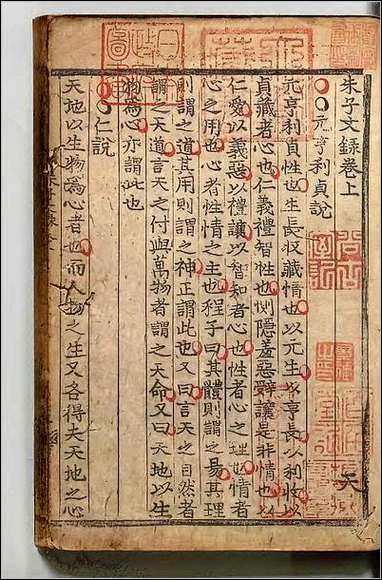 朱子文録卷上
元亨利貞說
元亨利貞性也生長收藏情也以元生以亨長以利收以
貞藏者心也仁義禮智性也惻隱羞惡辭讓是非情也以
仁愛以義惡以禮讓以智知者心也性者心之理也情者
心之用也心者性情之主也程子曰其體則謂之易其理
則謂之道其用則謂之神正謂此也又曰言天之自然者
謂之天道言天之付與萬物者謂之天命又曰天地以生
物爲心亦謂此也
仁說
天地以生物爲心者也而人物之生又各得夫天地之心